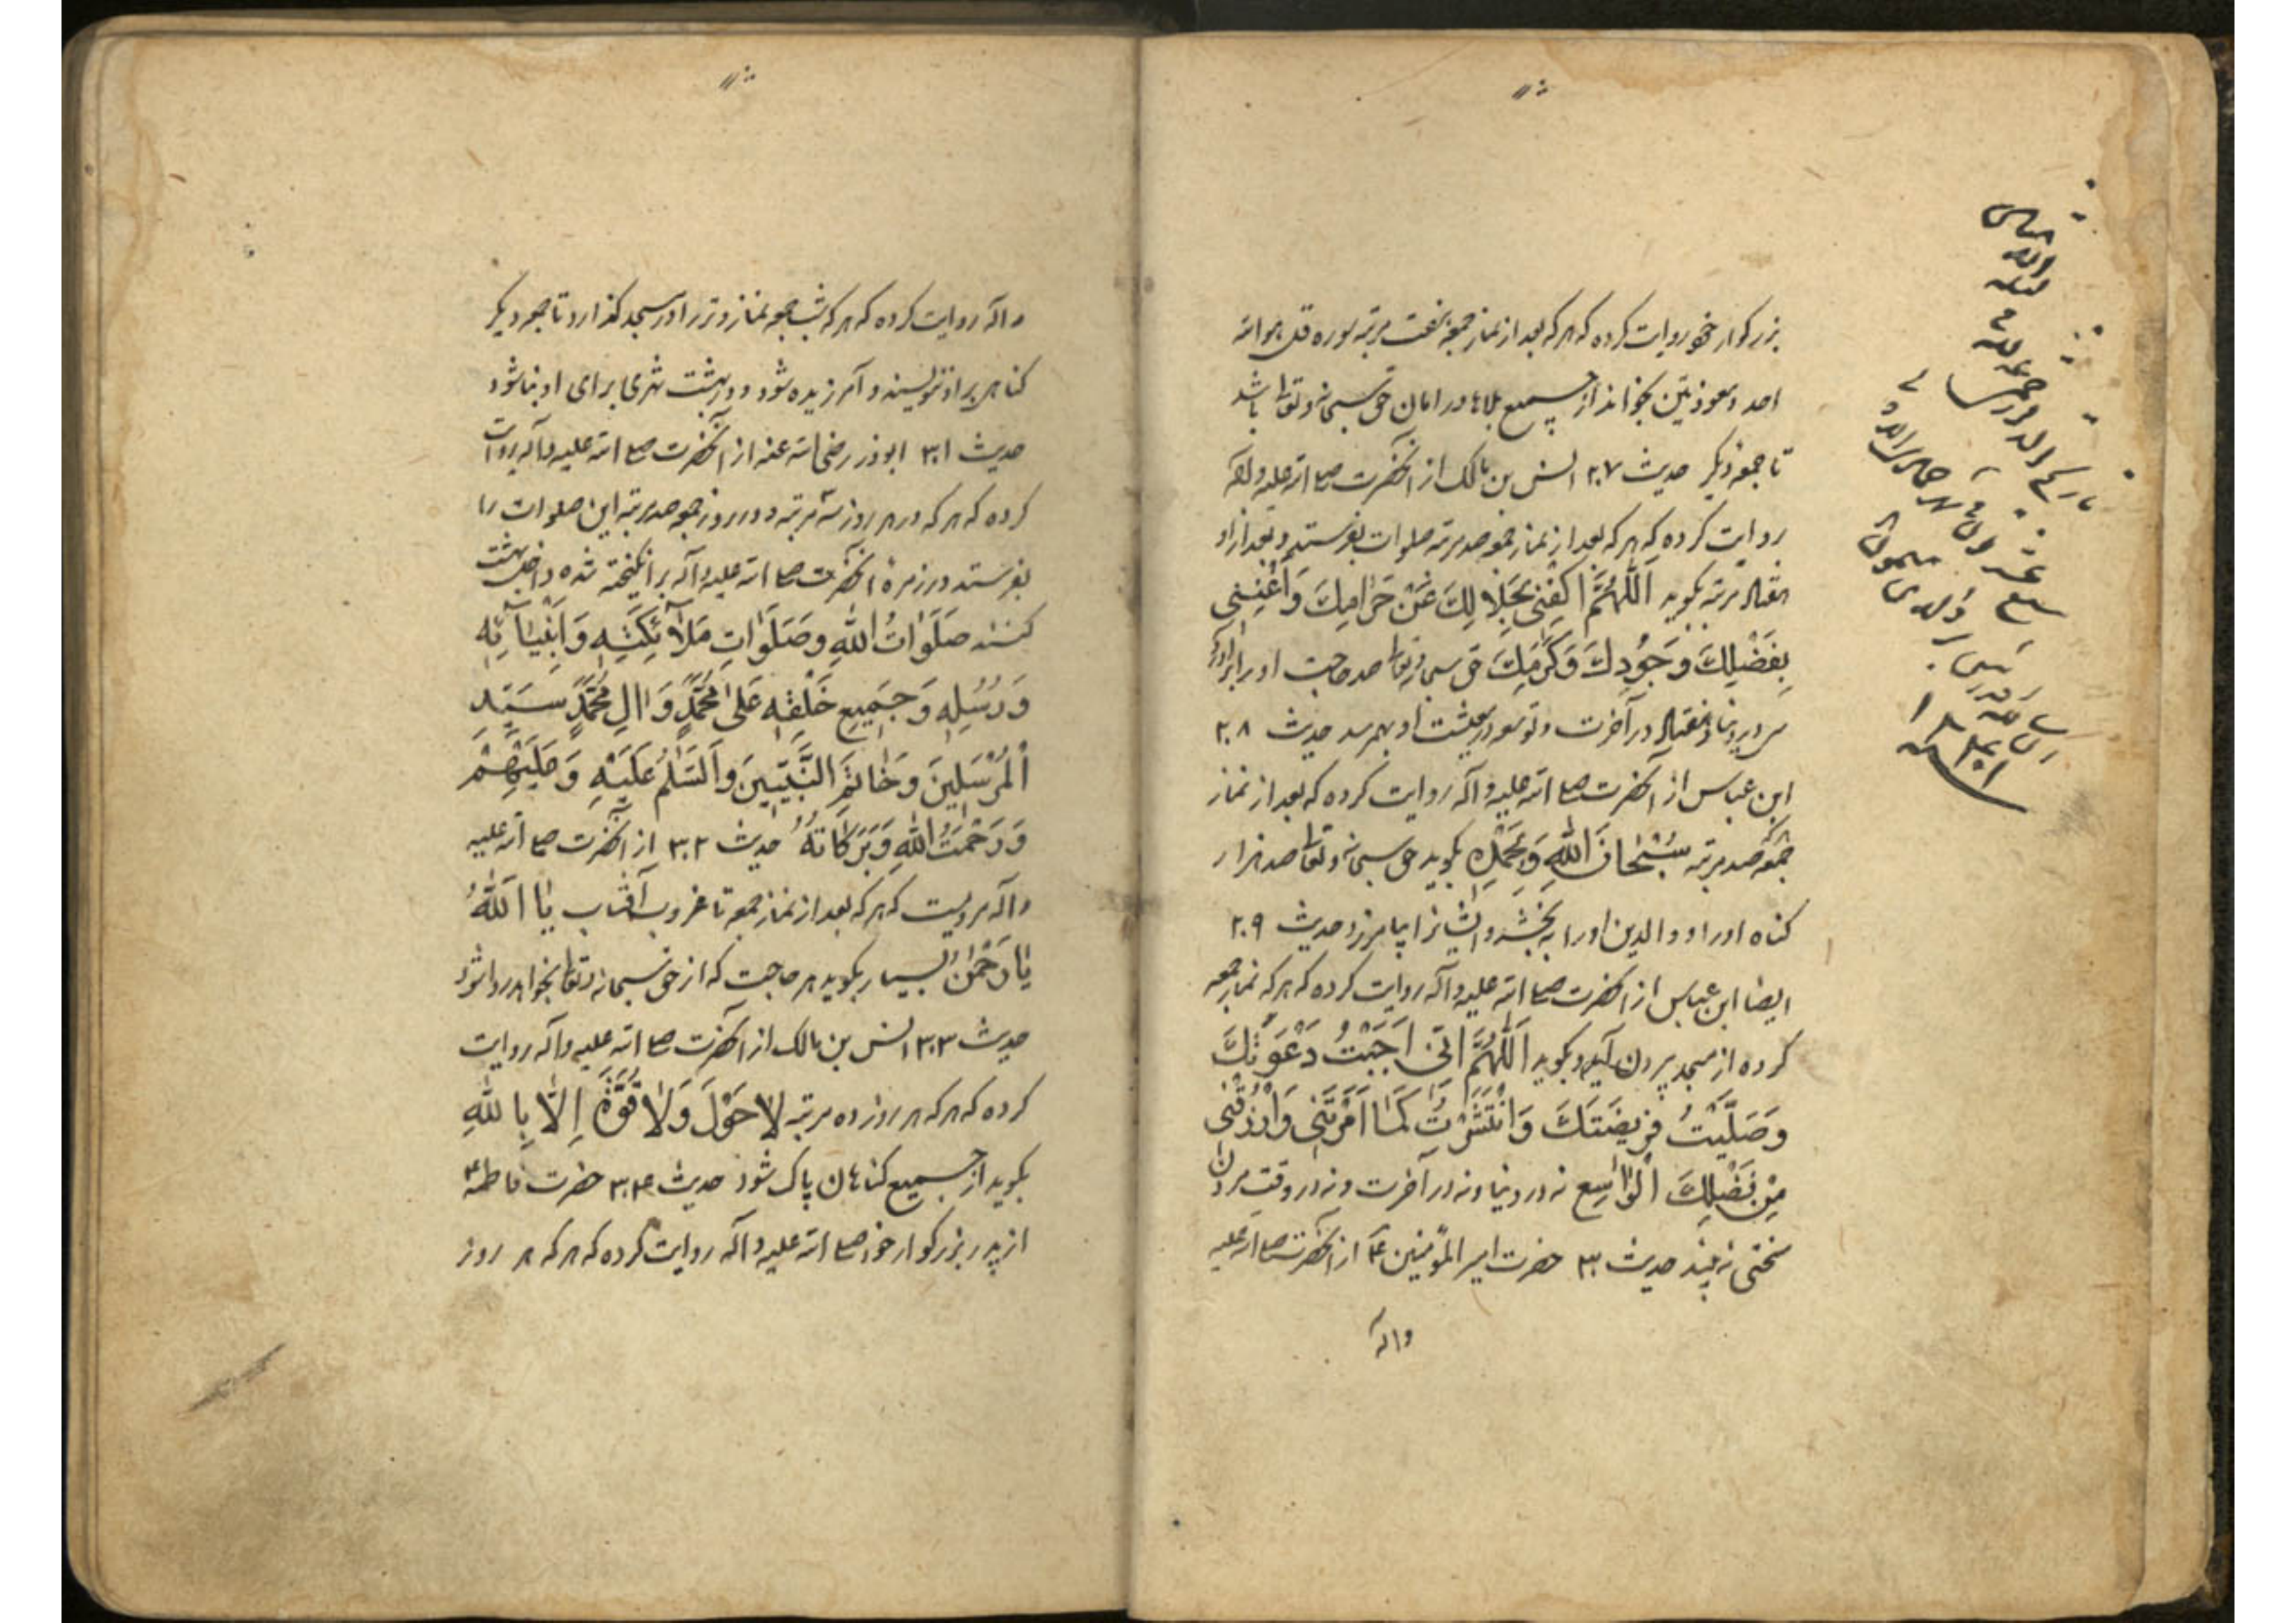 بزرکوار خود روایت کرده که هر که بعد از نماز جمعه هفت مرتبه سوره قل هو الله
احد و معوذتین بخواند از جمیع بلاها در امان حق سبحانه و تعالی باشد
تا جمعه دیکر حدیث ۲۰۷ انس بن مالک از آنحضرت صلی الله علیه و آله
روایت کرده که هر که بعد از نماز جمعه صد مرتبه صلوات بفرستد و بعد از او
هفتاد مرتبه بکوید اَللّٰهُمَّ اكْفِنِي بِحَلَالِكَ عَنْ حَرَامِكَ وَاَغْنِنِي
بِفَضْلِكَ وَجُودِكَ وَكَرَمِكَ حق سبحانه و تعالی صد حاجت او را برآورد
سی در دنیا و هفتاد در آخرت و توسعه در معیشت او بهم رسد حدیث ۲۰۸
ابن عباس از آنحضرت صلی الله علیه و آله روایت کرده که بعد از نماز
جمعه صد مرتبه سُبْحَانَ اللّٰهِ وَبِحَمْدِهِ بکوید حق سبحانه و تعالی صد هزار
کناه او را و والدین او را ببخشد و ایشانرا بیامرزد حدیث ۲۰۹
ایضا ابن عباس از آنحضرت صلی الله علیه و آله روایت کرده که هر که نماز جمعه
کرده از مسجد بیرون آید و بکوید اَللّٰهُمَّ اِنّي اَجَبْتُ دَعْوَتَكَ
وَصَلَّيْتُ فَرِيضَتَكَ وَانْتَشَرْتُ كَمَا اَمَرْتَنِي وَارْزُقْنِي
مِنْ فَضْلِكَ الْوَاسِعِ نه در دنیا و نه در آخرت و نه در وقت مردن
سختی نه بیند حدیث ۳۰ حضرت امیر المؤمنین ع از آنحضرت صلی الله علیه
و آله
و آله روایت کرده که هر که شب جمعه نماز وتر را در مسجد کذارد تا جمعه دیکر
کناهی بر او ننویسند و آمرزیده شود و در بهشت شهری برای او بنا شود
حدیث ۳۰۱ ابوذر رضی الله عنه از آنحضرت صلی الله علیه و آله روایت
کرده که هر که در هر روز سه مرتبه و در روز جمعه صد مرتبه این صلوات را
بفرستد در زمرهٔ آنحضرت صلی الله علیه و آله برانکیخته شده داخل بهشت
کنند صَلَوَاتُ اللّٰهِ وَصَلَوَاتِ مَلَآئِكَتِهِ وَاَنْبِيَآئِهِ
وَرُسُلِهِ وَجَمِيعِ خَلْقِهِ عَلىٰ مُحَمَّدٍ وَاٰلِ مُحَمَّدٍ سَيِّدِ
الْمُرْسَلِينَ وَخَاتَمِ النَّبِيِّينَ وَالسَّلٰمُ عَلَيْهِ وَعَلَيْهِمْ
وَرَحْمَتُ اللّٰهِ وَبَرَكَاتُهُ حدیث ۳۰۲ از آنحضرت صلی الله علیه
و آله مرویست که هر که بعد از نماز جمعه تا غروب آفتاب يَا اَللّٰهُ
يَا رَحْمٰنُ بسیار بکوید هر حاجت که از حق سبحانه و تعالی بخواهد روا شود
حدیث ۳۰۳ انس بن مالک از آنحضرت صلی الله علیه و آله روایت
کرده که هر که هر روز ده مرتبه لَا حَوْلَ وَلَا قُوَّةَ اِلَّا بِاللّٰهِ
بکوید از جمیع کناهان پاک شود حدیث ۳۰۴ حضرت فاطمه ع
از پدر بزرکوار خود صلی الله علیه و آله روایت کرده که هر که هر روز